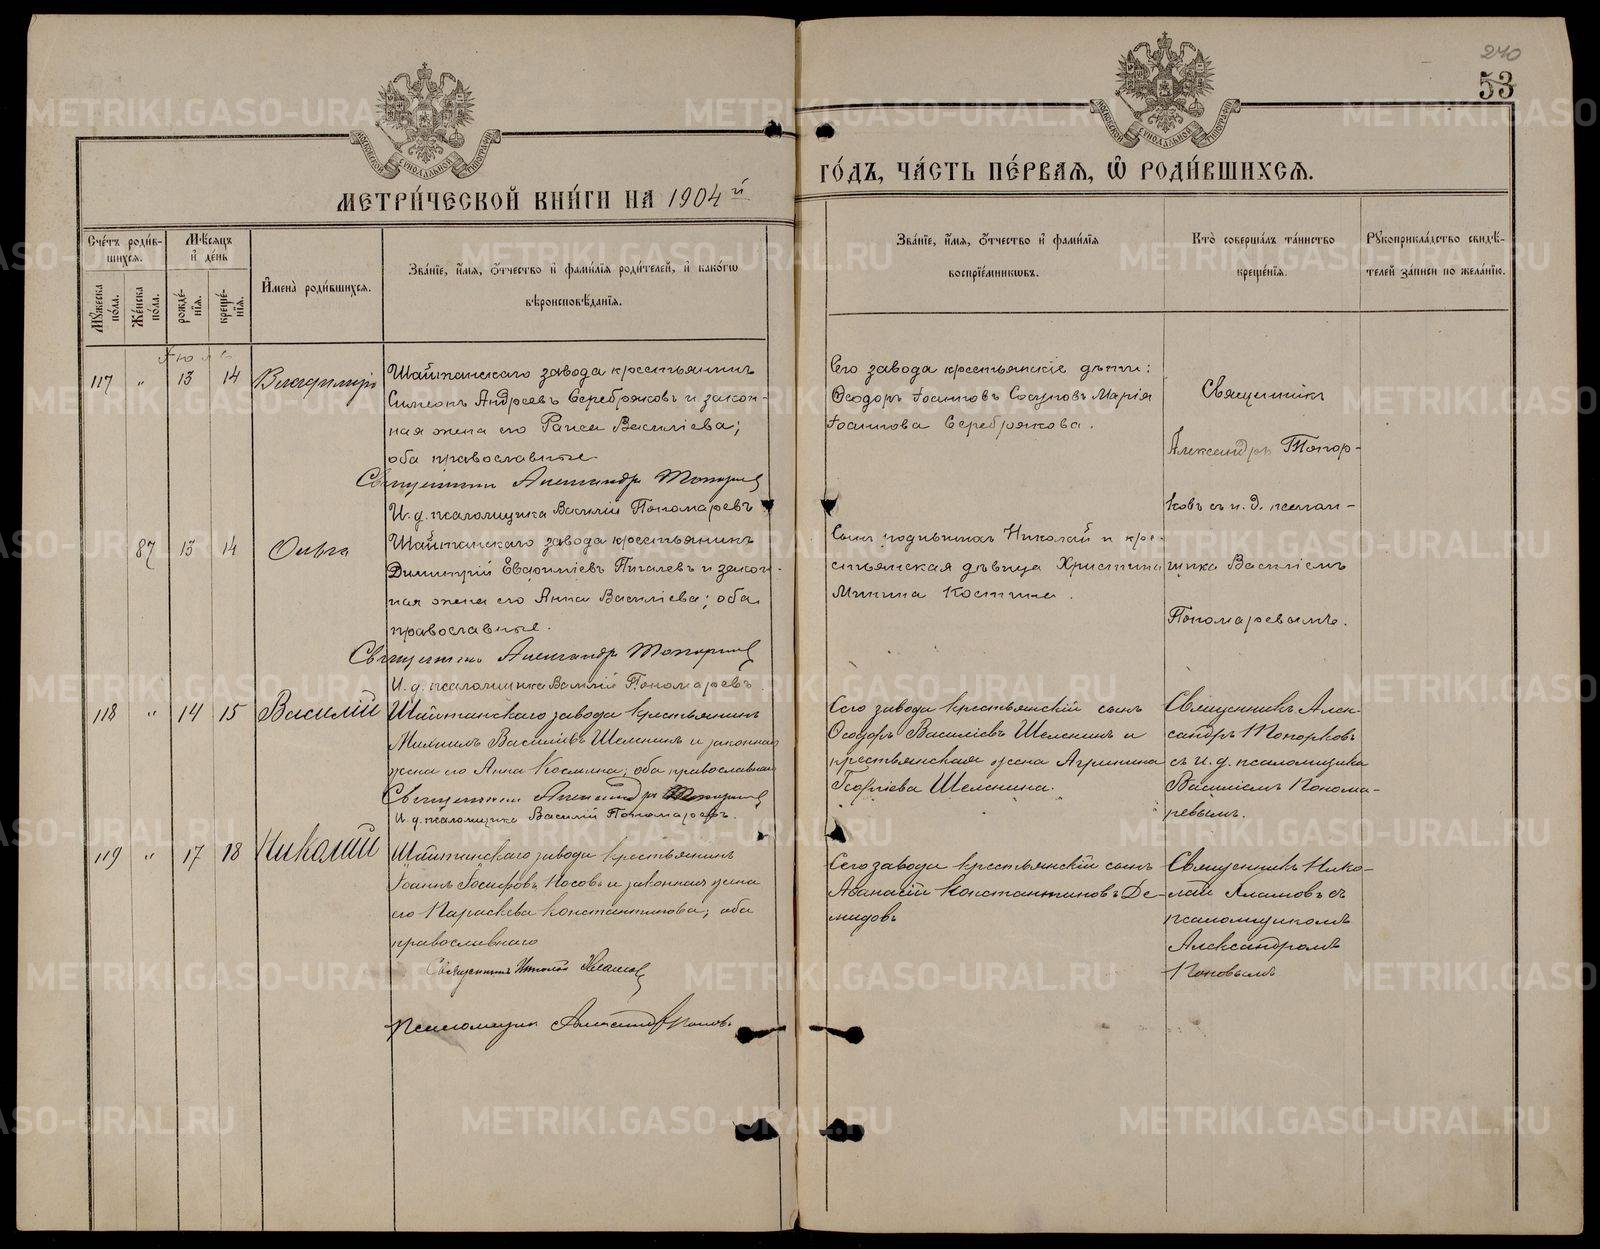 240
53
МЕТРИ́ЧЕСКОЙ КНИ́ГИ НА 1904й
ГО́ДЪ, ЧА́СТЬ ПЕ́РВАѦ, Ѽ РОДИ́ВШИХСѦ.
Сче́тъ роди́в-
шихсѧ.
Мѣ́сѧцъ
и҆ де́нь
Мꙋ́жеска
по́ла.
Же́нска
по́ла.
рожде́-
нїѧ.
креще́-
нїѧ.
И҆мена̀ роди́вшихсѧ.
Зва́нїе, и҆́мѧ, ѻ҆́тчество и҆ фами́лїѧ роди́телей, и҆ како́гѡ
вѣроисповѣ́данїѧ.
Зва́нїе, и҆́мѧ, ѻ҆́тчество и҆ фами́лїѧ
воспрїе́мникѡвъ.
Кто̀ соверша́лъ та́инство
креще́нїѧ.
Рꙋкоприкла́дство свидѣ́-
телей за́писи по жела́нїю.
Іюль
117 " 13 14 Владиміръ
Шайтанскаго завода крестьянинъ
Симеонъ Андреевъ Серебряковъ и закон-
ная жена его Раиса Василіева;
оба православные
Священникъ Александръ Топорковъ
И. д. псаломщика Василій Пономаревъ
Сего завода крестьянскіе дѣти:
Ѳеодоръ Іоанновъ Сосуновъ Марія
Іоаннова Серебрякова.
Священникъ
Александръ Топор-
ковъ съ и. д. псалом-
щика Василіемъ
Пономаревымъ.
87 13 14 Ольга
Шайтанскаго завода крестьянинъ
Димитрій Евфиміевъ Пигалевъ и закон-
ная жена его Анна Василіева; оба
православные.
Священникъ Александръ Топорковъ
И. д. псаломщика Василій Пономаревъ
Сынъ Николай и кре-
стьянская дѣвица Христина
Минина Костина.
118 " 14 15 Василій
Шайтанскаго завода крестьянинъ
Михаилъ Василіевъ Шелонинъ и законная
жена его Анна Космина; оба православнаго
Священникъ Александръ Топорковъ
И. д. псаломщика Василій Пономаревъ.
Сего завода крестьянскій сынъ
Ѳеодоръ Василіевъ Шелонинъ и
крестьянская жена Агрипина
Георгіева Шелонина.
Священникъ Алек-
сандръ Топорковъ
съ и. д. псаломщика
Василіемъ Понома-
ревымъ.
119 " 17 18 Николай
Шайтанскаго завода крестьянинъ
Іоаннъ Іосифовъ Носовъ и законная жена
его Параскева Константинова; оба
православнаго
Священникъ Николай
Псаломщикъ Александръ Поповъ.
Сего завода крестьянскій сынъ
Аѳанасій Константиновъ Де-
мидовъ
Священникъ Нико-
лай съ
псаломщикомъ
Александромъ
Поповымъ
METRIKI.GASO-URAL.RU